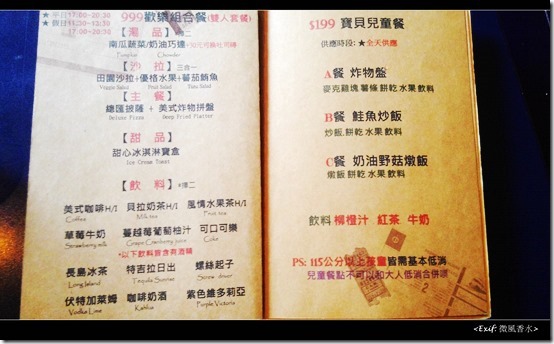 ★平日17:00-20:30
★假日11:30-13:30
17:00-20:30
999歡樂組合餐(雙人套餐)
【湯品】
南瓜蔬菜/奶油巧達
Pumpkin Chowder
【沙拉】三合一
田園沙拉+優格水果+蕃茄鮪魚
Veggie Salad Fruit Salad Tuna Salad
【主餐】
總匯披薩 + 美式炸物拼盤
Deluxe Pizza Deep Fried Platter
【甜品】
甜心冰淇淋寶盒
Ice Cream Toast
【飲料】
美式咖啡H/I 貝拉奶茶H/I 風情水果茶H/I
Coffee Milk tea Fruit tea
草莓牛奶 蔓越莓葡萄柚汁 可口可樂
Strawberry milk Grape Cranberry juice Coke
*以下飲料皆含有酒精
長島冰茶 特吉拉日出 螺絲起子
Long Island Tequila Sunrise Screw driver
伏特加萊姆 咖啡奶酒 紫色維多莉亞
Vodka Lime Kahlua Purple Victoria
$199 寶貝兒童餐
供應時段:★全天供應
A餐 炸物盤
麥克雞塊 薯條 餅乾 水果 飲料
B餐 鮭魚炒飯
炒飯 餅乾 水果 飲料
C餐 奶油野菇燉飯
燉飯 餅乾 水果 飲料
飲料 柳橙汁 紅茶 牛奶
PS: 115公分以上孩童皆需基本低消
兒童餐點不可以和大人低消合併喔
<Exif:微風香水>